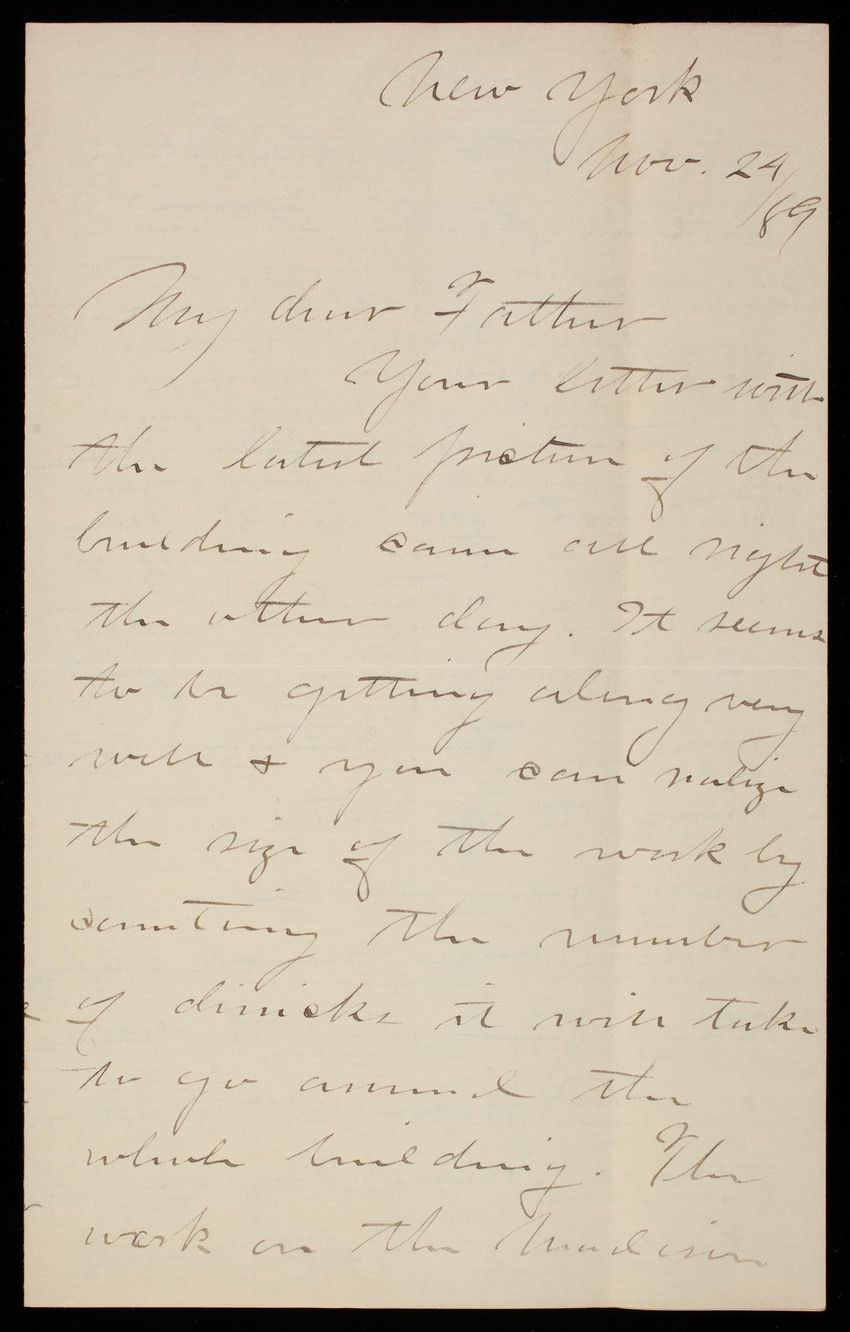 New York
Nov. 24/89
My dear Father
Your letter with
the latest picture of the
building came all right
the other day. It seems
to be getting along very
well & you can realize
the size of the work by
counting the number
of derricks it will take
to go around the
whole building. The
work on the Madison